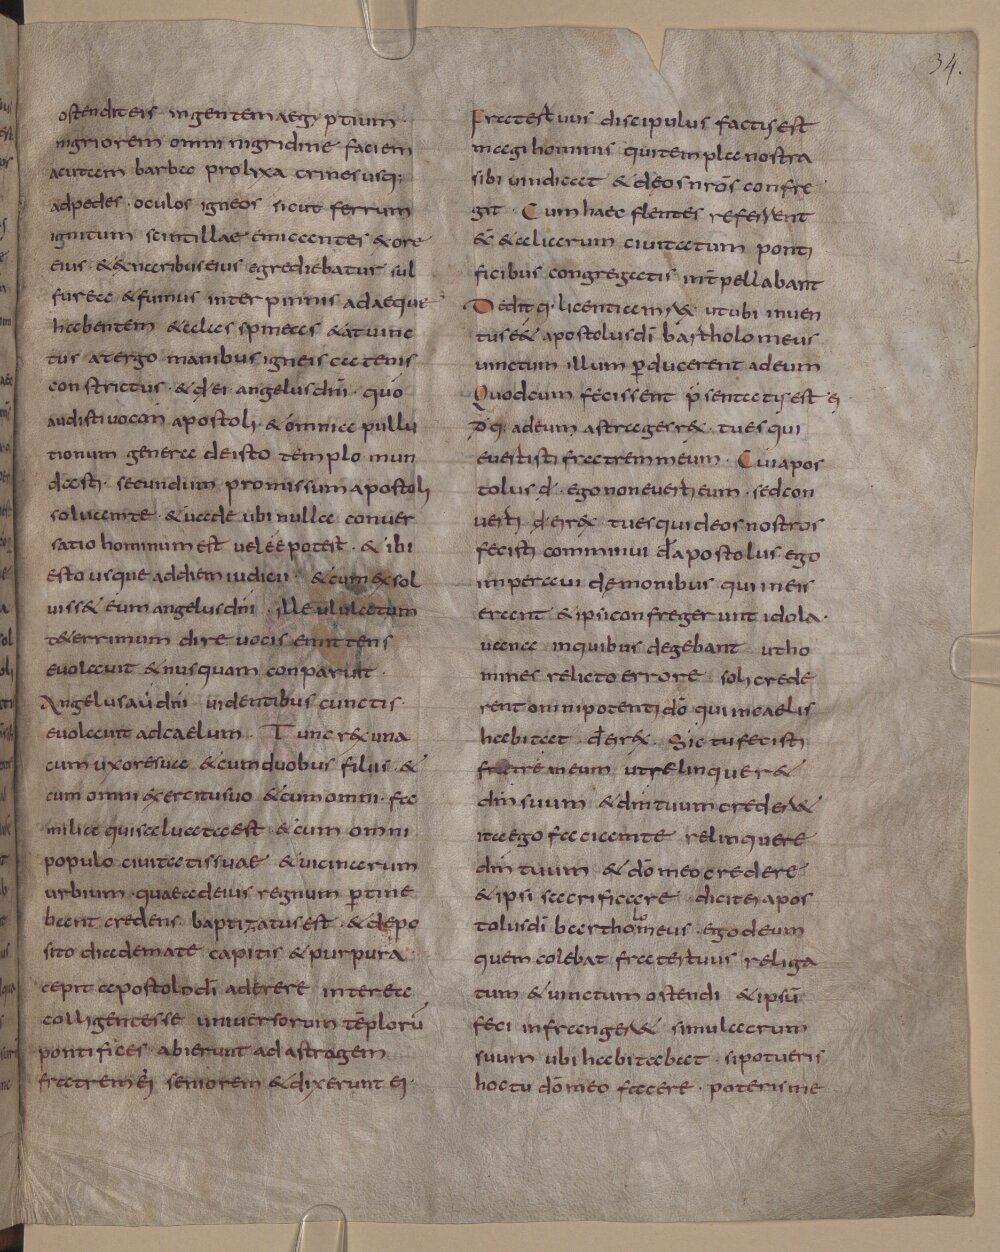 34.
ostendit eis ingentem aegyptium ·
nigriorem omni nigridine faciem
acutam barba prolixa crines usq;
ad pedes · oculos igneos sicut ferrum
ignitum scintillae emicantes & ore
eius · & & naribus eius egrediebatur sul
furea & fumus inter pinnis adaeque
habentem & alas spineas & at uinc
tus a tergo manibus igneis catenis
constrictus · & d' ei angelus dn̄i · quo
audisti uocem apostoli · & omnia pullu
tionum genera de isto templo mun
dasti · secundum promissum apostoli
soluam te · & uade ubi nulla conuer
satio hominum est uel ee potest · & ibi
esto usque ad diem iudicii · & cum & sol
uiss& eum angelus dn̄i · ille ululatum
t&errimum dire uocis emittens
euolauit & nusquam conparuit ·
Angelus aū dn̄i uidentibus cunctis ·
euolauit ad caelum · Tunc r&x una
cum uxore sua & cum duobus filiis &
cum omni &ercitu suo & cum omni · fa
milia quae saluata est & cum omni
populo ciuitatis suae & uicinarum
urbium · quae ad eius regnum ꝑtine
bant credens · baptizatus est · & depo
sito diademate capitis & purpura ·
cepit apostolo dī aderere interea
colligentes se uniuersorum tēplorū
pontifices · abierunt ad astragem
fratrem ei seniorem & dixerunt ei ·
Frater tuus discipulus factus est
magi hominis qui templa nostra
sibi uindicat & deos nr̄os confre
git · Cum haec flentes referrent
ec̄ & aliarum ciuitatum ponti
ficibus congregatis int̄pellabant
Dedit q· licentiam r& ut ubi inuen
tus e& apostolus dī bartholomeus
uinctum illum ꝑducerent ad eum
Quod cum fecissent p̄sentatus est ei
d' q· ad eum astrages r&x · tu es qui
euertisti fratrem meum · Cui apos
tolus d' · ego non euerti eum · sed con
uerti d' ei r&x tu es qui deos nostros
fecisti comminui d' apostolus ego
imperaui demonibus qui in eis
erant & ipsi confregerunt idola ·
uana in quibus degebant ut ho
mines relicto errore soli crede
rent omnipotenti dō qui in caelis
habitat d' ei r&x · Sic tu fecisti
fratre meum ut relinquer&
dm̄ suum & dm̄ tuum creder&
ita ego faciam te relinquere
dm̄ tuum & dō meo credere
& ipsi sacrificare dicit ei apos
tolus dī barthomeus · ego deum
lo
quem colebat frater tuus religa
tum & uinctum ostendi & ipsū
feci infranger& simulacrum
suum ubi habitabat · si potueris
hoc tu dō meo facere · poteris me